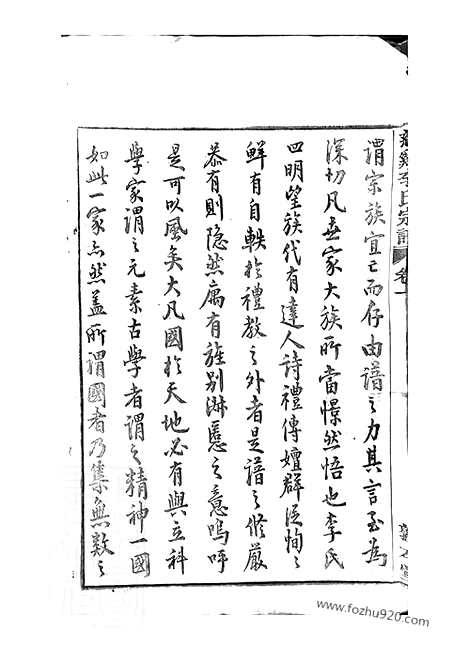 謂宗族宜亡而存由譜之力其言至為
深切凡世家大族所當憬然悟也李氏
四明望族代有達人詩禮傳嬗群從恂之
鮮有自軼於禮教之外者是譜之修嚴
恭有則隐然寓有旌别淋慝之意嗚呼
是可以風矣大凡國於天地必有與立科
學家謂之元素古學者謂之精神一國
如此一家亦然蓋所謂國者乃集無數之
李氏宗譜 卷一
www.fozhu920.com